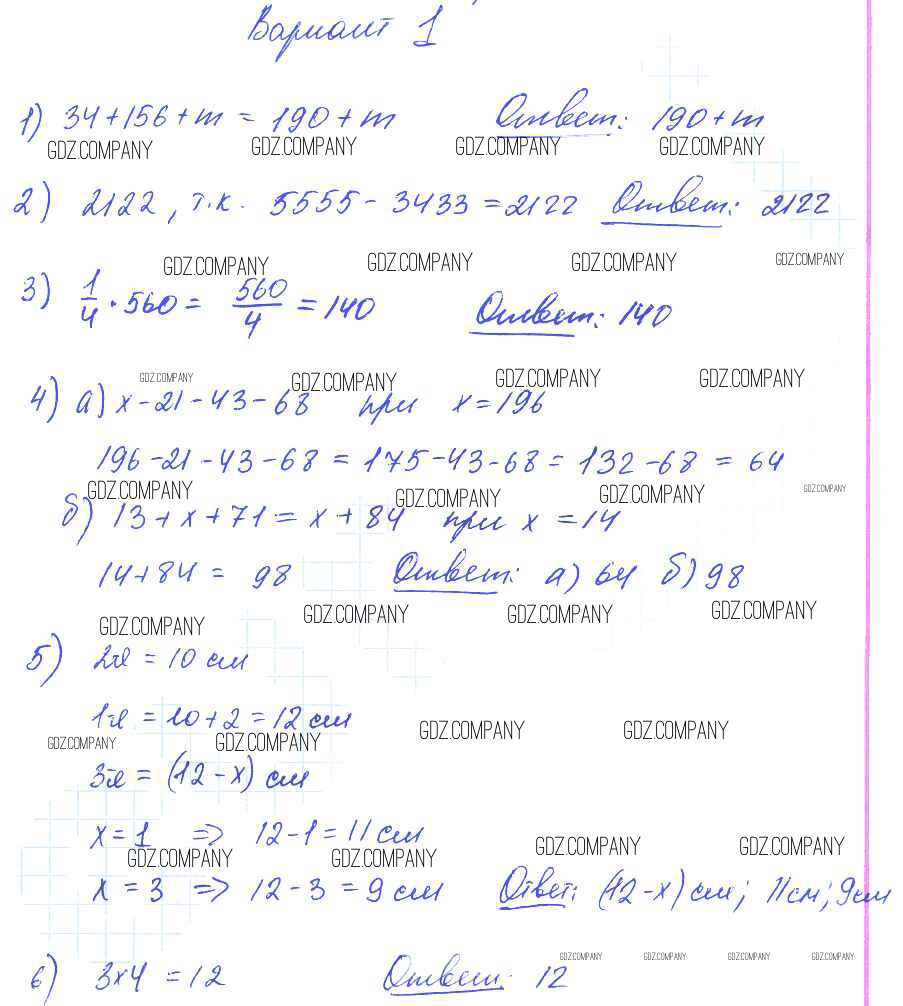 Вариант 1
1) 34+156+m = 190+m Ответ: 190+m
GDZ.COMPANY GDZ.COMPANY GDZ.COMPANY GDZ.COMPANY
2) 2122, т.к. 5555-3433=2122 Ответ: 2122
GDZ.COMPANY GDZ.COMPANY GDZ.COMPANY GDZ.COMPANY
3) 1/4 · 560 = 560/4 = 140 Ответ: 140
GDZ.COMPANY GDZ.COMPANY GDZ.COMPANY GDZ.COMPANY
4) а) x-21-43-68 при x=196
196-21-43-68 = 175-43-68 = 132-68 = 64
GDZ.COMPANY GDZ.COMPANY GDZ.COMPANY GDZ.COMPANY
б) 13+x+71 = x+84 при x=14
14+84 = 98 Ответ: а) 64 б) 98
GDZ.COMPANY GDZ.COMPANY GDZ.COMPANY GDZ.COMPANY
5) 2-я = 10 см
1-я = 10+2 = 12 см
GDZ.COMPANY GDZ.COMPANY GDZ.COMPANY GDZ.COMPANY
3-я = (12-x) см
x=1 => 12-1=11 см
GDZ.COMPANY GDZ.COMPANY GDZ.COMPANY GDZ.COMPANY
x=3 => 12-3=9 см Ответ: (12-x) см; 11 см; 9 см
GDZ.COMPANY GDZ.COMPANY GDZ.COMPANY GDZ.COMPANY
6) 3x4 = 12 Ответ: 12